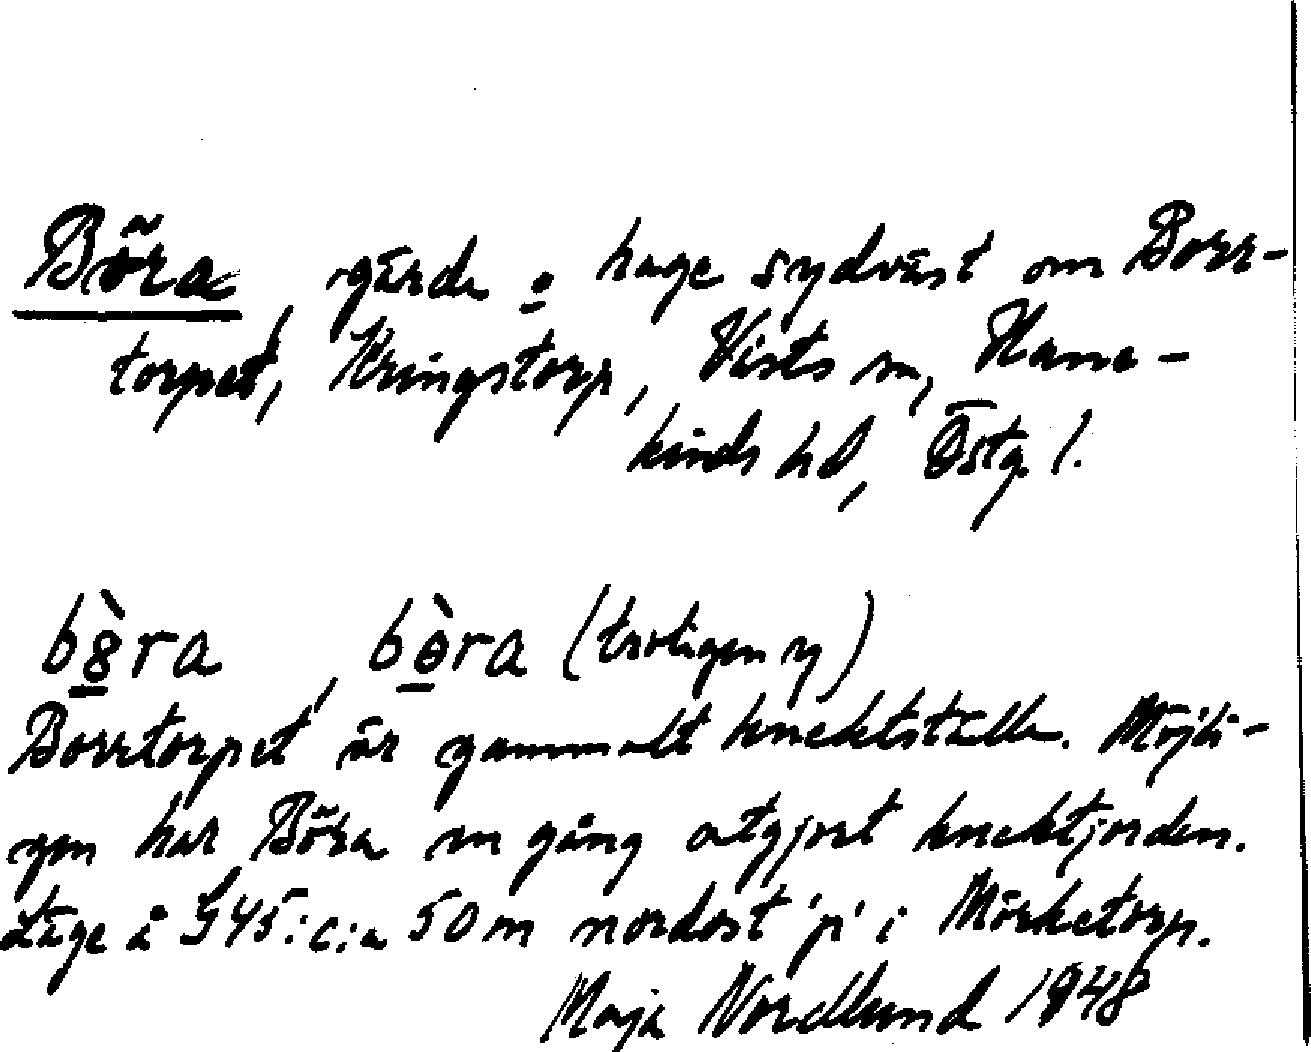 Böra, gärde o hage sydväst om Borr-
torpet, Kringstorp, Vists sn, Hane-
kinds hd, Östg. l.
bòra, bòra (troligen y)
Borrtorpet är gammalt knektställe. Möjli-
gen har Böra en gång utgjort knektjorden.
Läge å G45: c:a 50 m nordost 'p' i Mörketorp.
Maja Nordlund 1948